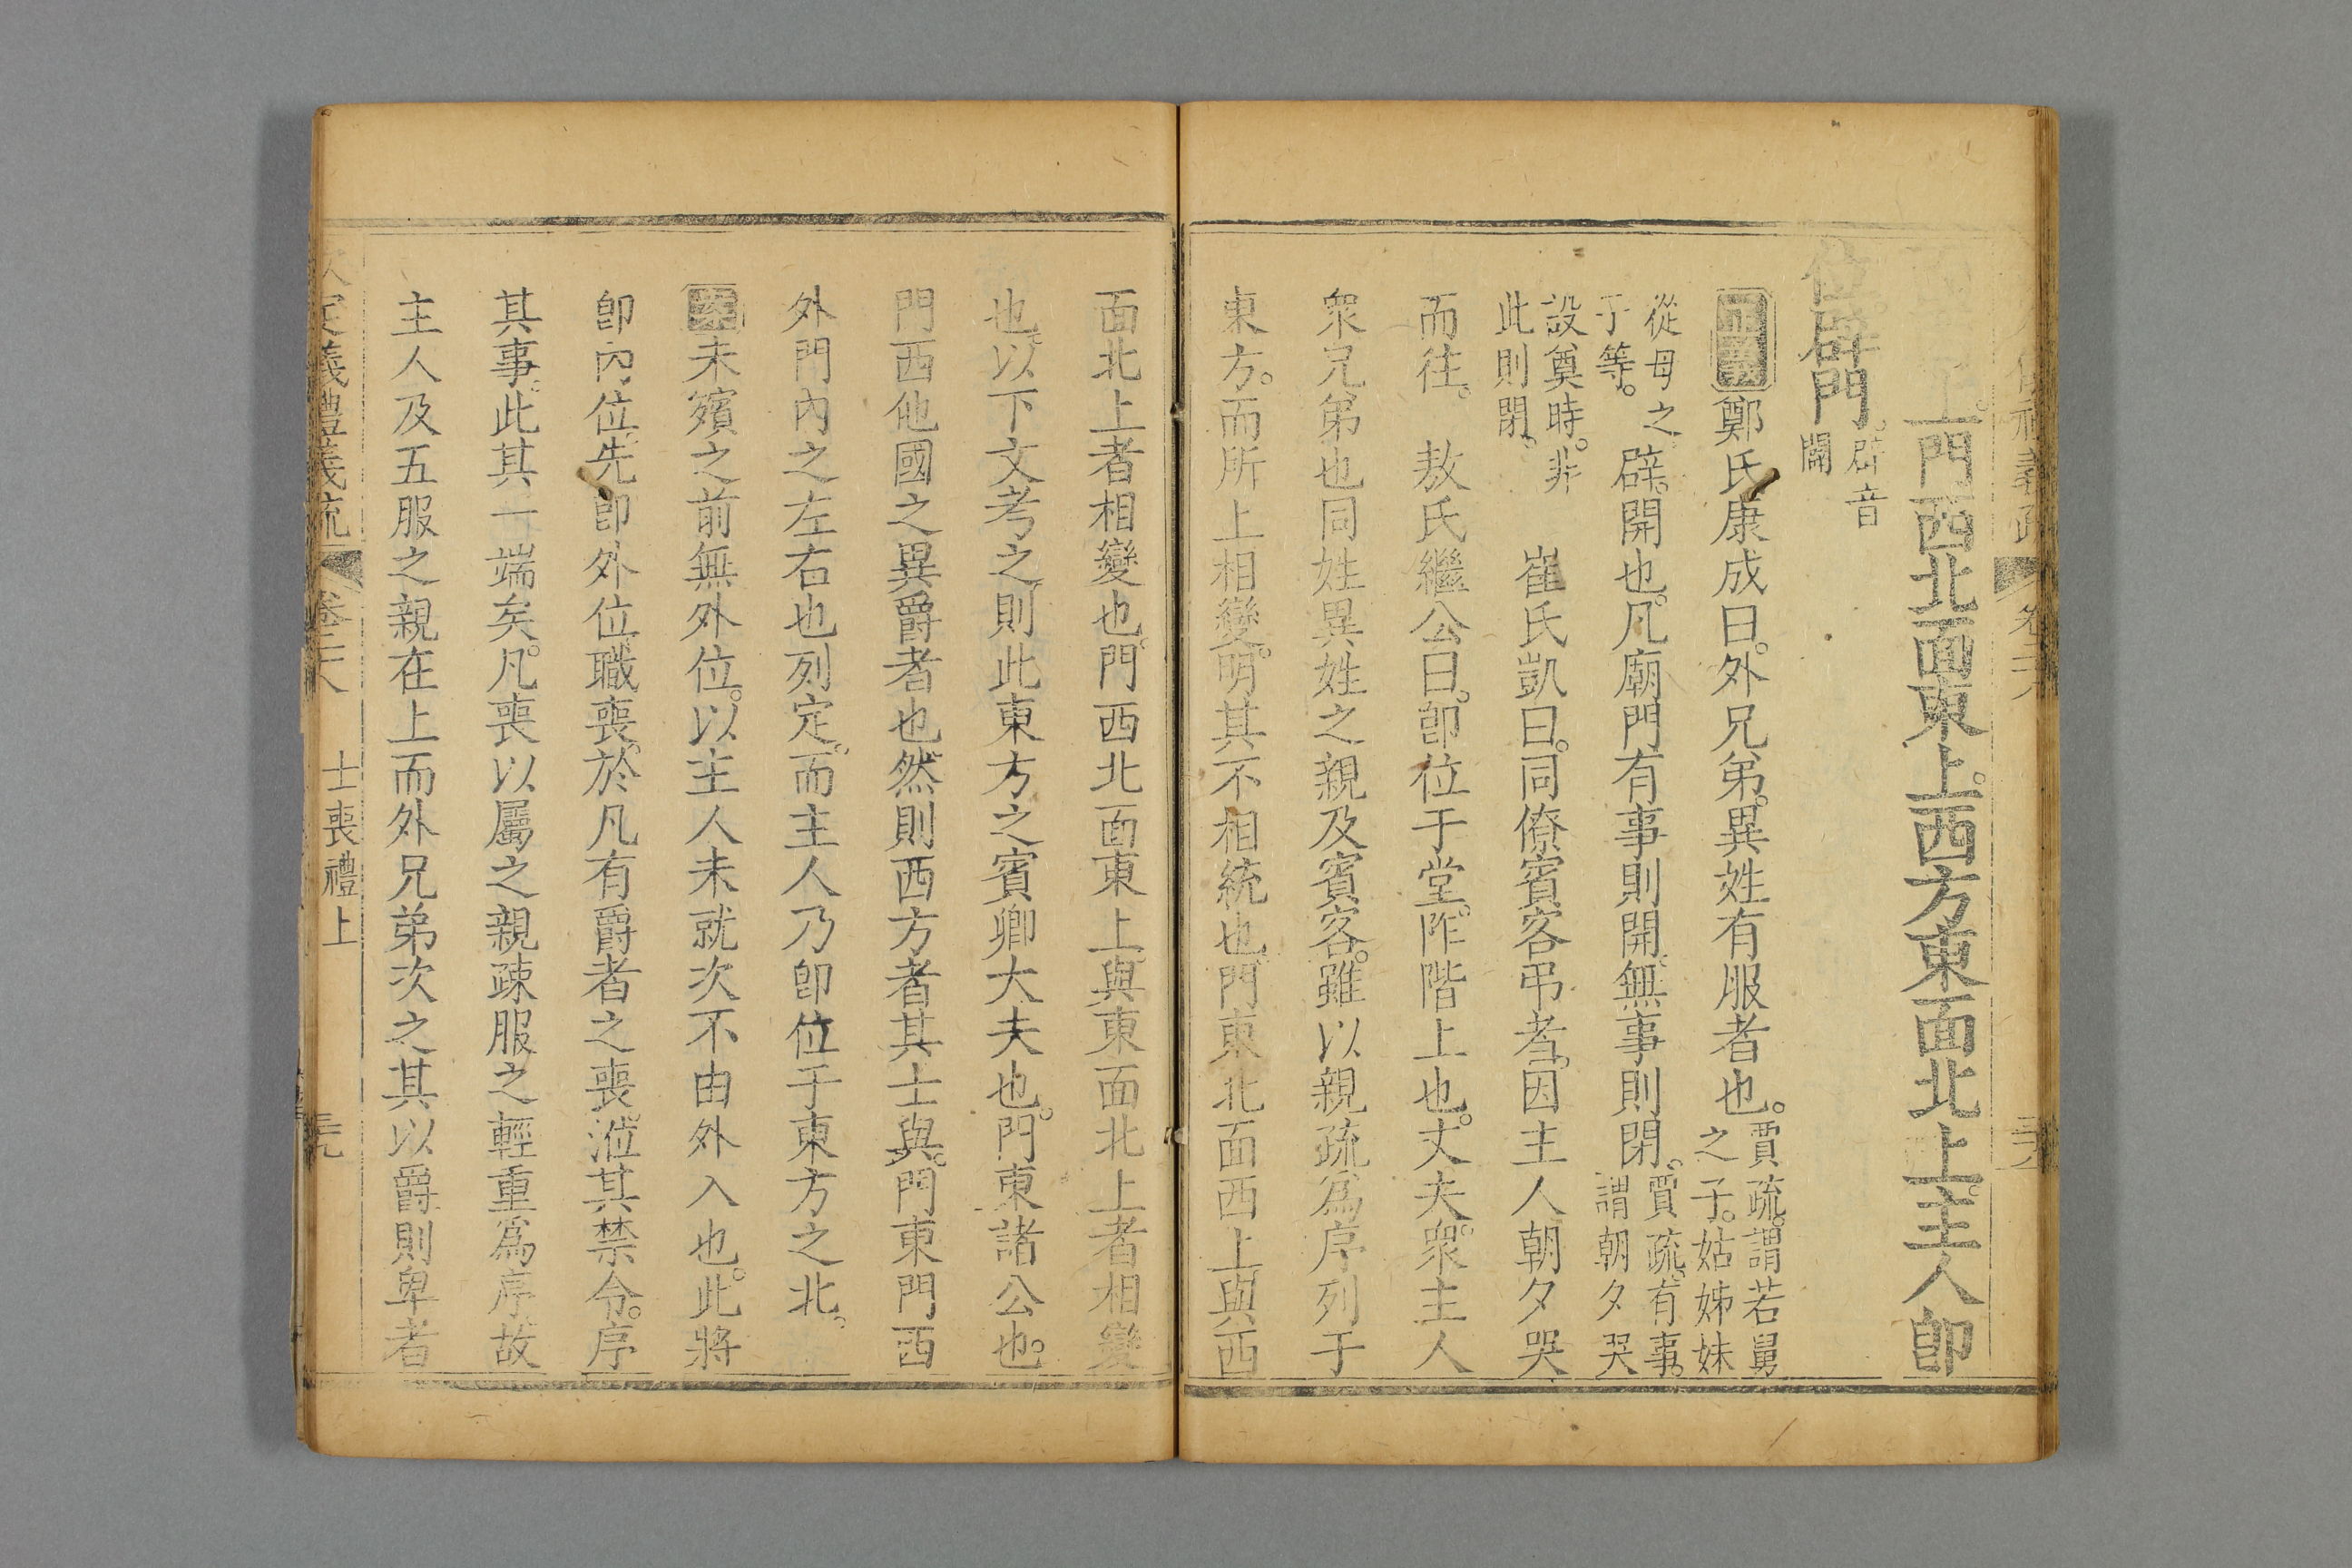 儀禮義疏 卷二十八
上。門西北面東上。西方東面北上。主人即
位。辟門。辟音開
正義鄭氏康成曰。外兄弟。異姓有服者也。賈疏。謂若舅之子。姑姊妹
從母之子等。辟。開也。凡廟門有事則開。無事則閉。賈疏。有事。謂朝夕哭
設奠時。非此則閉。 崔氏凱曰。同僚賓客弔者。因主人朝夕哭
而往。 敖氏繼公曰。卽位于堂。阼階上也。丈夫。眾主人
眾兄弟也同姓異姓之親及賓客。雖以親疏爲序列于
東方。而所上相變。明其不相統也。門東北面西上與西
面北上者相變也。門西北面東上。與東面北上者相變
也。以下文考之。則此東方之賓卿大夫也。門東諸公也。
門西他國之異爵者也。然則西方者其士與。門東門西
外門內之左右也列定。而主人乃卽位于東方之北。
案未殯之前無外位。以主人未就次不由外入也。此將
卽內位。先卽外位職喪。於凡有爵者之喪。涖其禁令。序
其事。此其一端矣。凡喪以屬之親疎服之輕重爲序。故
主人及五服之親在上而外兄弟次之其以爵則卑者
定義禮義疏 卷二十八 士喪禮上 三九